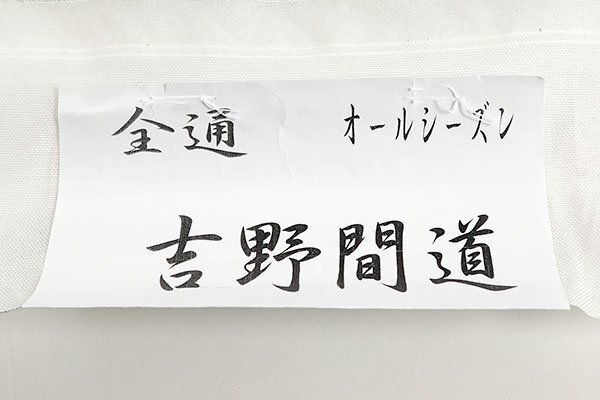 全通 オールシーズン
吉野間道